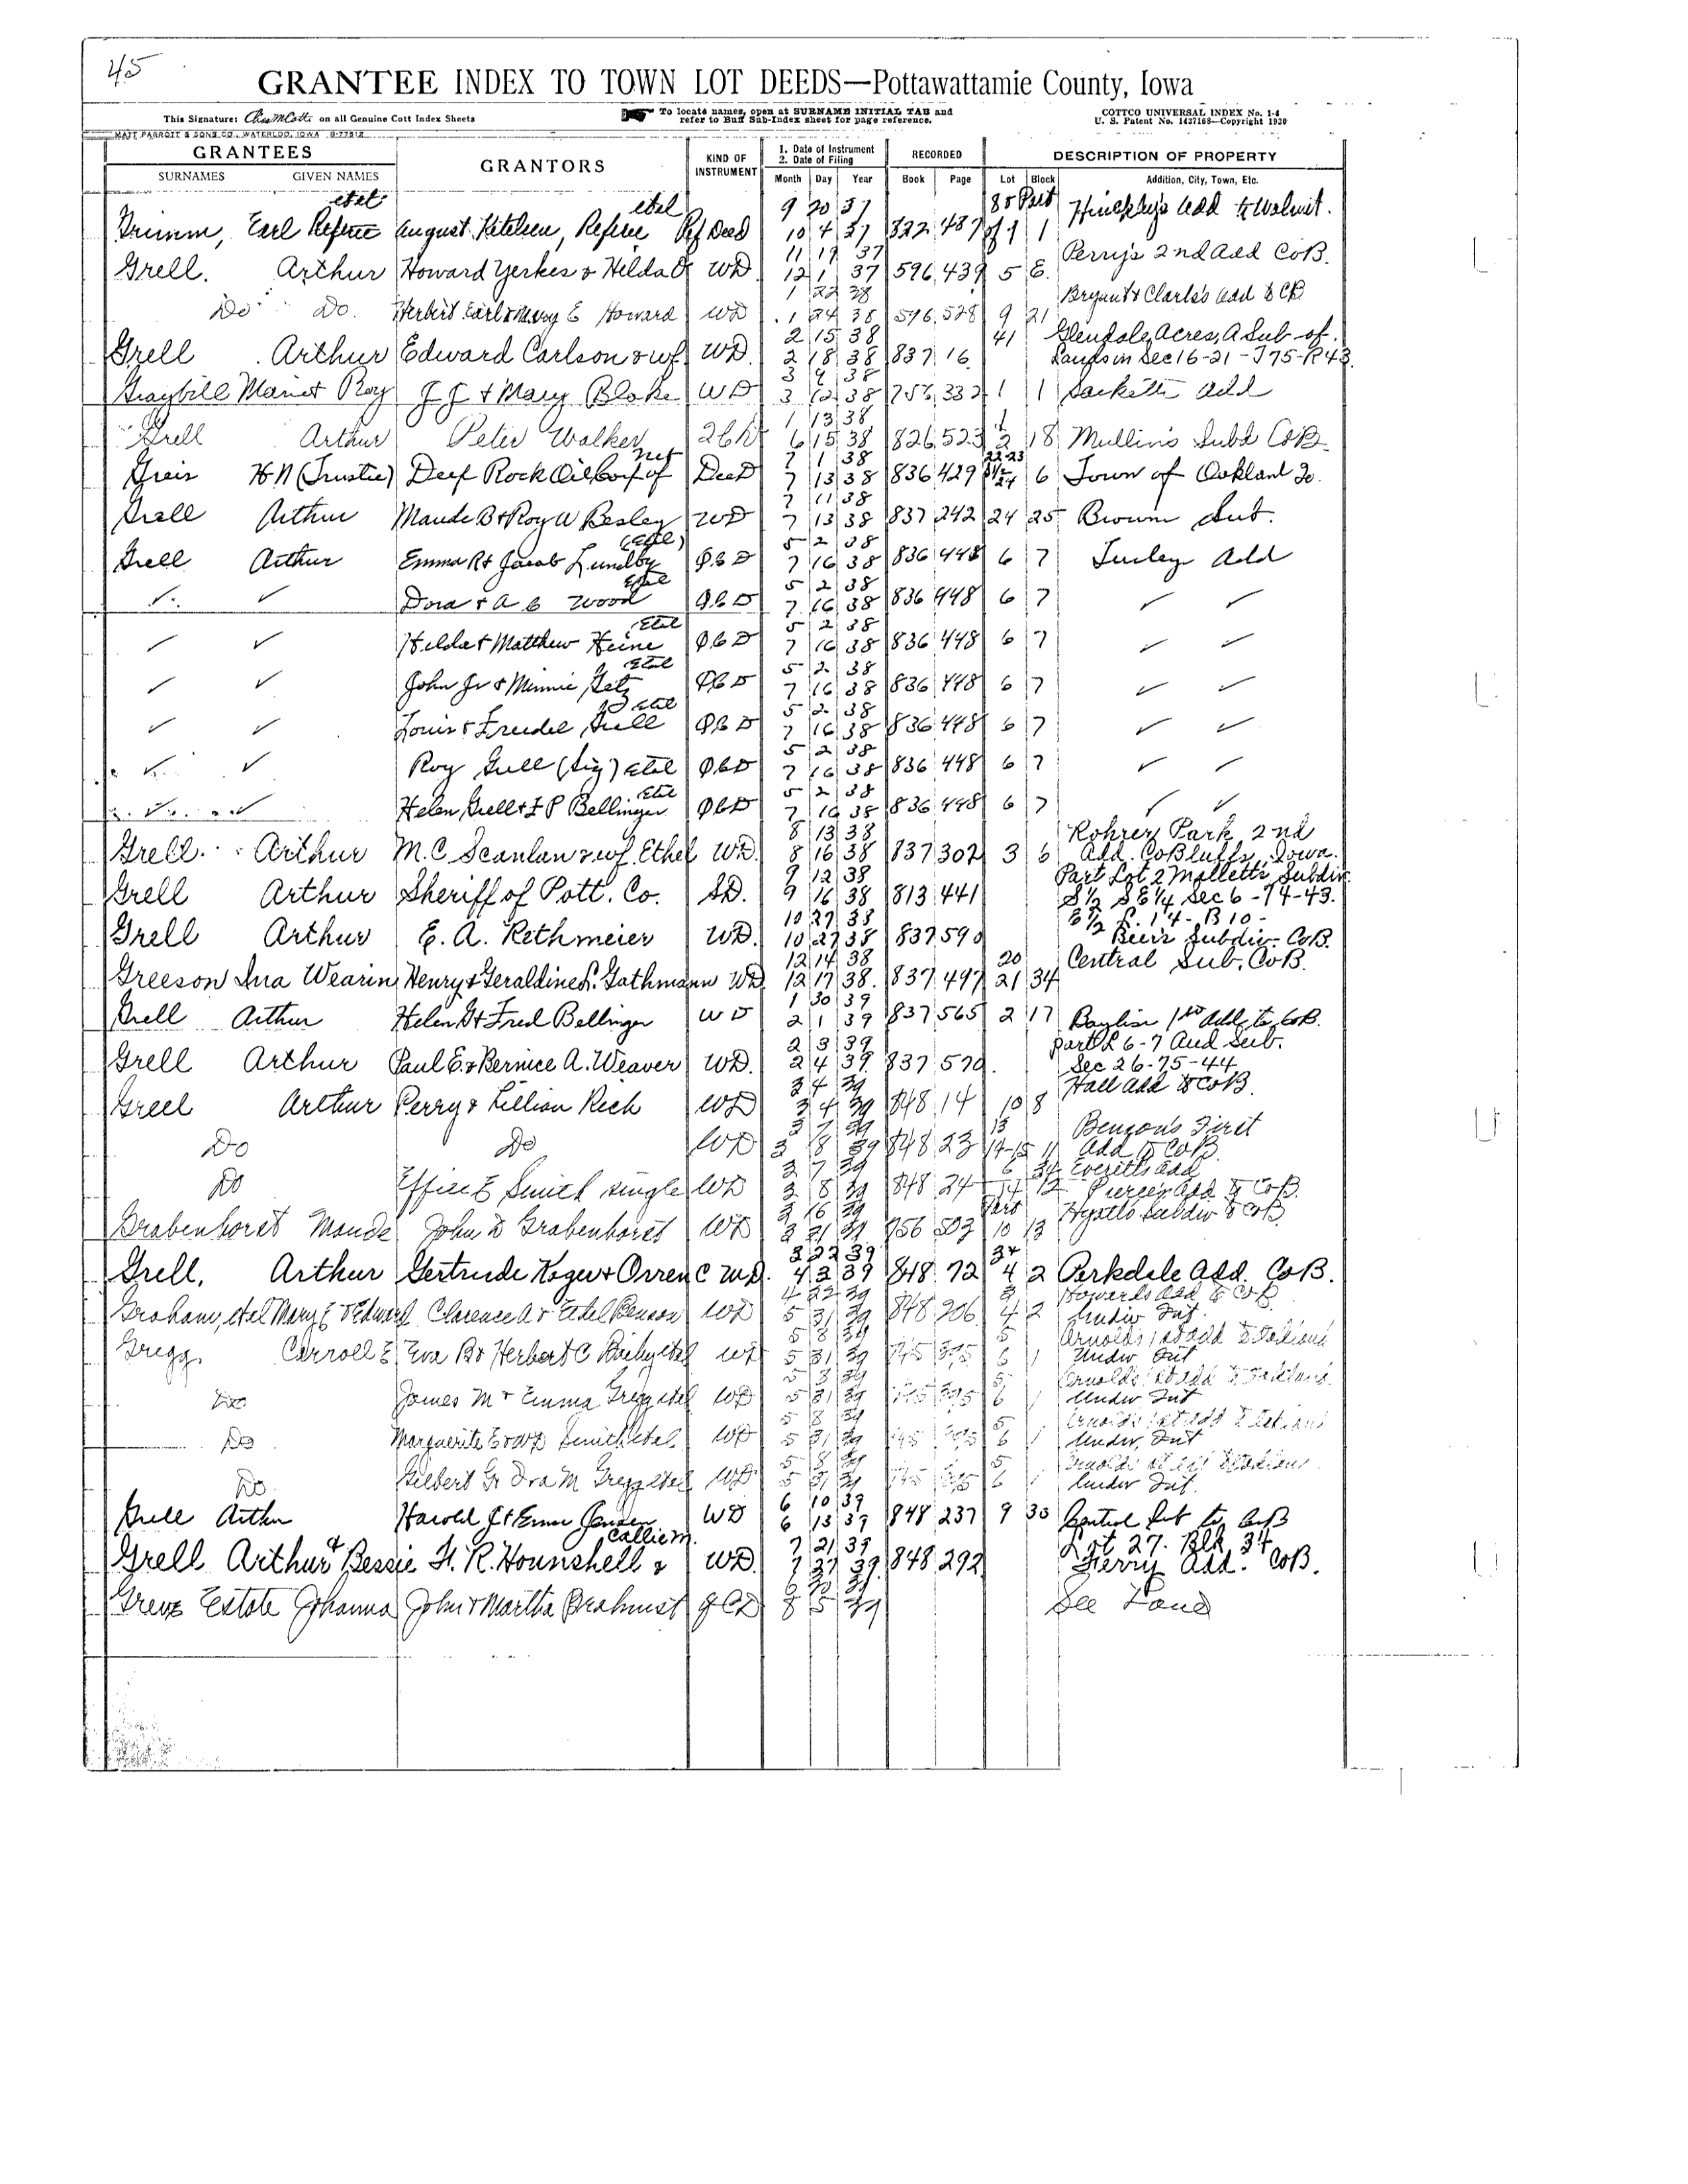 45
GRANTEE INDEX TO TOWN LOT DEEDS—Pottawattamie County, Iowa
This Signature: on all Genuine Cott Index Sheets
To locate names, open at SURNAME INITIAL TAB and
refer to Buff Sub-Index sheet for page reference.
COTTCO UNIVERSAL INDEX No. 1-4
U. S. Patent No. 1437168—Copyright 1930
MATT PARROTT & SONS CO., WATERLOO, IOWA
GRANTEES GRANTORS KIND OF INSTRUMENT 1. Date of Instrument 2. Date of Filing RECORDED DESCRIPTION OF PROPERTY
SURNAMES GIVEN NAMES Month Day Year Book Page Lot Block Addition, City, Town, Etc.
etal etal 9 20 37 80 Part Hinckley's Add to Walnut.
Grimm, Earl Referee August Kitelsen, Referee Ref Deed 10 4 37 822 487 of 1 1
11 19 37 Perry's 2nd Add CoB.
Grell. Arthur Howard Yerkes & Hilda O WD. 12 1 37 596 439 5 E.
1 22 38 Bryant & Clark's Add to CB
Do Do. Herbert Earl & Mary E Howard WD 1 24 38 596 528 9 21
2 15 38 41 Glendale Acres, A Sub of
Grell Arthur Edward Carlson & wf WD. 2 18 38 837 16 Lands in Sec 16-21-T75-R43.
3 9 38
Graybill Marie & Roy J J & Mary Blake WD 3 12 38 756 332 1 1 Sacketts Add
1 13 38 1
Grell Arthur Peter Walker 6 15 38 826 523 2 18 Mullins Subd CoB.
7 1 38 22-23
Greis H N (Trustee) Deep Rock Oil Corp of Deed 7 13 38 836 429 6 Town of Oakland Ia.
7 11 38
Grell Arthur Maude B & Roy W Besley WD 7 13 38 837 242 24 25 Browns Sub.
(Etal) 5 2 38
Grell Arthur Emma R & Jacob Lundby QCD 7 16 38 836 448 6 7 Turley Add
Etal 5 2 38
✓ ✓ Dora & A C Wood QCD 7 16 38 836 448 6 7 ✓ ✓
Etal 5 2 38
✓ ✓ Hilda & Matthew Heine QCD 7 16 38 836 448 6 7 ✓ ✓
Etal 5 2 38
✓ ✓ John Jr & Minnie Getz QCD 7 16 38 836 448 6 7 ✓ ✓
etal 5 2 38
✓ ✓ Louis & Freudel Grell QCD 7 16 38 836 448 6 7 ✓ ✓
5 2 38
✓ ✓ Roy Grell (Sig) etal QCD 7 16 38 836 448 6 7 ✓ ✓
Etal 5 2 38
✓ ✓ Helen Grell & F P Bellinger QCD 7 16 38 836 448 6 7 ✓ ✓
8 13 38 Rohrers Park 2nd
Grell. Arthur M.C Scanlan & wf. Ethel WD. 8 16 38 837 302 3 6 Add. CoBluffs, Iowa.
9 12 38 Part Lot 2 Malletts Subdiv.
Grell Arthur Sheriff of Pott. Co. SD. 9 16 38 813 441 S½ SE¼ Sec 6-74-43.
10 27 38 E½ L. 14-B10-
Grell Arthur E. A. Rethmeier WD. 10 27 38 837 590 Beers Subdiv. CoB.
12 14 38 20 Central Sub. CoB.
Greeson Ina Wearin Henry & Geraldine L. Gathmann WD 12 17 38 837 497 21 34
1 30 39
Grell Arthur Helen G & Fred Bellinger WD 2 1 39 837 565 2 17 Bayliss 1st Add to CoB.
2 3 39 part L 6-7 Aud Sub.
Grell Arthur Paul E. & Bernice A. Weaver WD. 2 4 39 837 570. Sec 26-75-44
3 4 39 Hall Add to CoB.
Grell Arthur Perry & Lillian Rich WD 3 4 39 848 14 10 8
3 7 39 13 Benson's First
Do Do WD 3 8 39 848 23 14-15 11 Add to CoB
3 7 39 6 34 Everetts Add
Do Effie E Smith single WD 3 8 39 848 24 14 12 Pierces Add to CoB.
3 16 39 Part Hyatts Subdiv to CoB
Grabenhorst Maude John D Grabenhorst WD 3 21 39 856 503 10 13
3 22 39 34
Grell, Arthur Gertrude Koger & Orren C WD. 4 3 39 848 72 4 2 Parkdale Add. CoB.
4 22 39 3 Howards Add to CoB
Graham, etal Mary E & Edward Clarence A & Ethel Benson WD 5 31 39 848 206 4 2 Undiv Int.
5 8 39 5 Arnolds 1st Add to Oakland
Gregg, Carroll E Eva B & Herbert C etal WD 5 31 39 6 1 Undiv Int
5 8 39 5 Arnolds 1st Add to Oakland.
Do James M & Emma Gregg etal WD 5 31 39 6 1 Undiv Int
5 8 39 5 Arnolds 1st Add to Oakland
Do Marguerite Smith etal WD 5 31 39 6 1 Undiv. Int
5 8 39 5 Arnolds
Do Gilbert G Ora M Gregg etal WD 5 31 39 6 1 Undiv Int.
6 10 39
Grell Arthur Harold J & Jensen WD 6 13 39 848 237 9 30 Central Sub to CoB
Callie M. 7 21 39 Lot 27. Blk 34
Grell Arthur & Bessie H. R. Hounshell & WD. 7 27 39 848 292 Ferry Add. CoB.
Estate Johanna John & Martha QCD 8 5 39 See Land